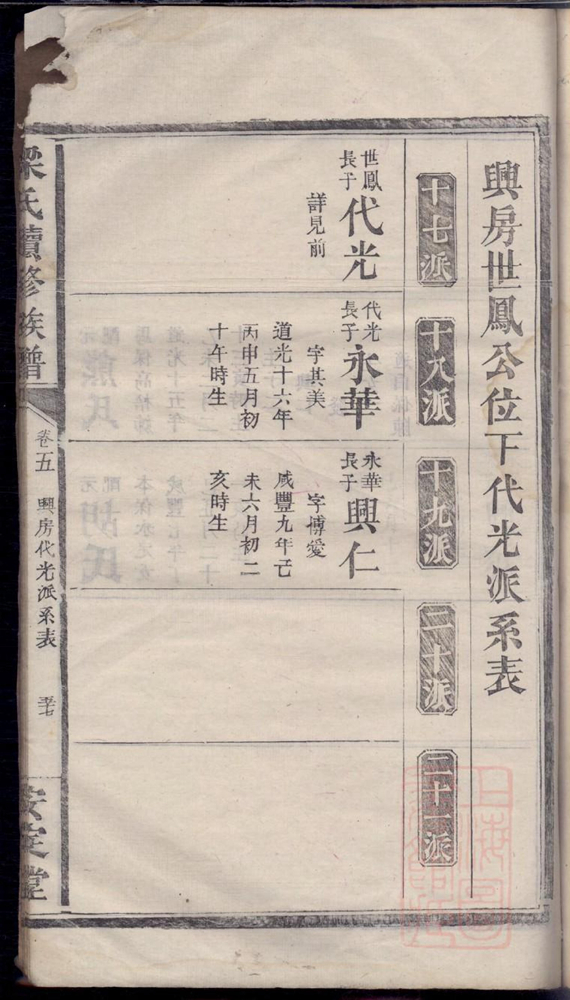 興房世鳳公位下代光派系表
十七派
十八派
十九派
二十派
二十一派
世鳳
長子
代光
詳見前
代光
長子
永華
字其美
道光十六年
丙申五月初
十午時生
永華
長子
興仁
字博愛
咸豐九年己
未六月初二
亥時生
梁氏續修族譜
卷五
興房代光派系表
安定堂